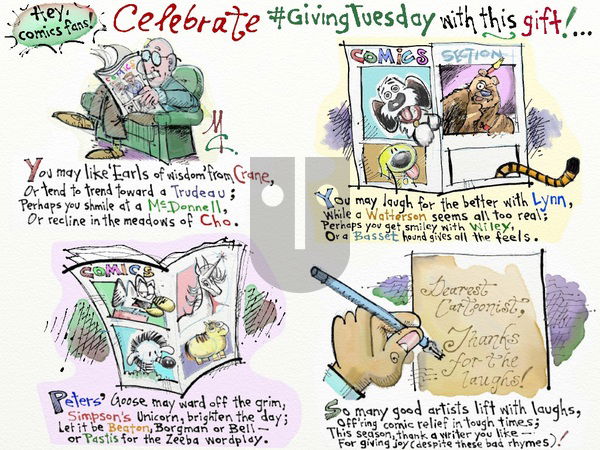 Hey, comics fans!
Celebrate #GivingTuesday with this gift!...
COMICS
MC
You may like 'Earls of wisdom' from Crane,
Or tend to trend toward a Trudeau;
Perhaps you shmile at a McDonnell,
Or recline in the meadows of Cho.
COMICS SECTION
You may laugh for the better with Lynn,
While a Watterson seems all too real;
Perhaps you get smiley with Wiley,
Or a Basset hound gives all the feels.
COMICS
Peters' Goose may ward off the grim,
Simpson's Unicorn, brighten the day;
Let it be Beaton, Borgman or Bell —
or Pastis for the Zeeba wordplay.
Dearest
Cartoonist,
Thanks
for the
laughs!
So many good artists lift with laughs,
Off'ring comic relief in tough times;
This season, thank a writer you like —
For giving joy (despite these bad rhymes)!